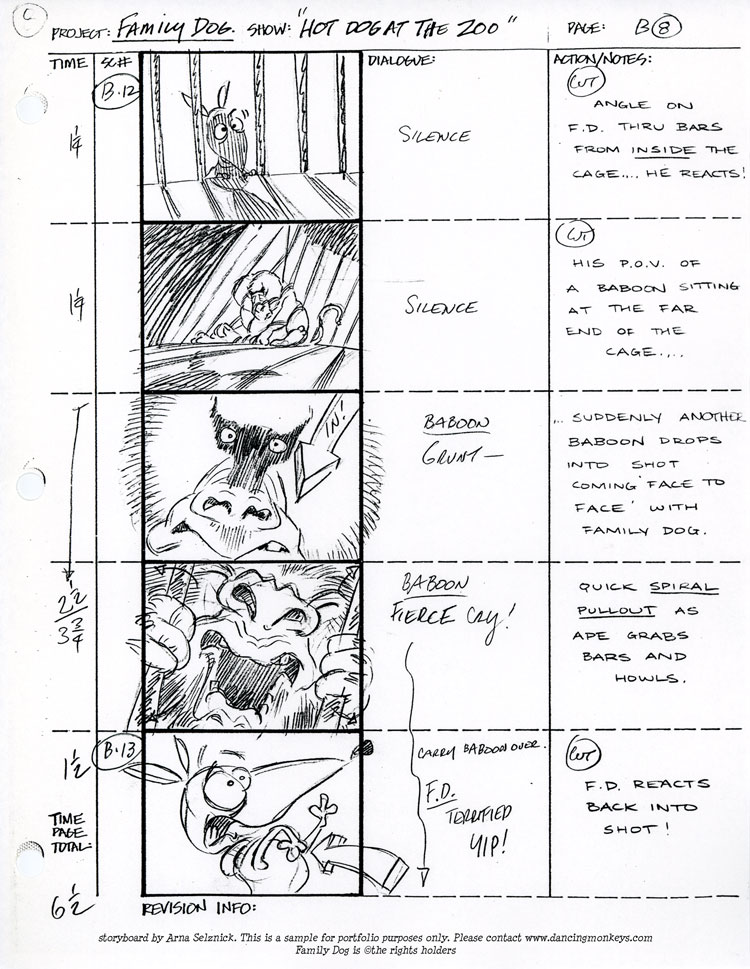 C
PROJECT: FAMILY DOG. SHOW: "HOT DOG AT THE ZOO" PAGE: B 8
TIME SC# DIALOGUE: ACTION/NOTES:
B.12
1 1/4
SILENCE
CUT
ANGLE ON
F.D. THRU BARS
FROM INSIDE THE
CAGE.... HE REACTS!
1 1/4
SILENCE
CUT
HIS P.O.V. OF
A BABOON SITTING
AT THE FAR
END OF THE
CAGE....
IN!
BABOON
GRUNT—
... SUDDENLY ANOTHER
BABOON DROPS
INTO SHOT
COMING 'FACE TO
FACE' WITH
FAMILY DOG.
2 1/2
3 3/4
BABOON
FIERCE CRY!
QUICK SPIRAL
PULLOUT AS
APE GRABS
BARS AND
HOWLS.
B.13
1 1/2
CARRY BABOON OVER.
F.D.
TERRIFIED
YIP!
CUT
F.D. REACTS
BACK INTO
SHOT!
TIME
PAGE
TOTAL:
6 1/2
REVISION INFO:
storyboard by Arna Selznick. This is a sample for portfolio purposes only. Please contact www.dancingmonkeys.com
Family Dog is ©the rights holders